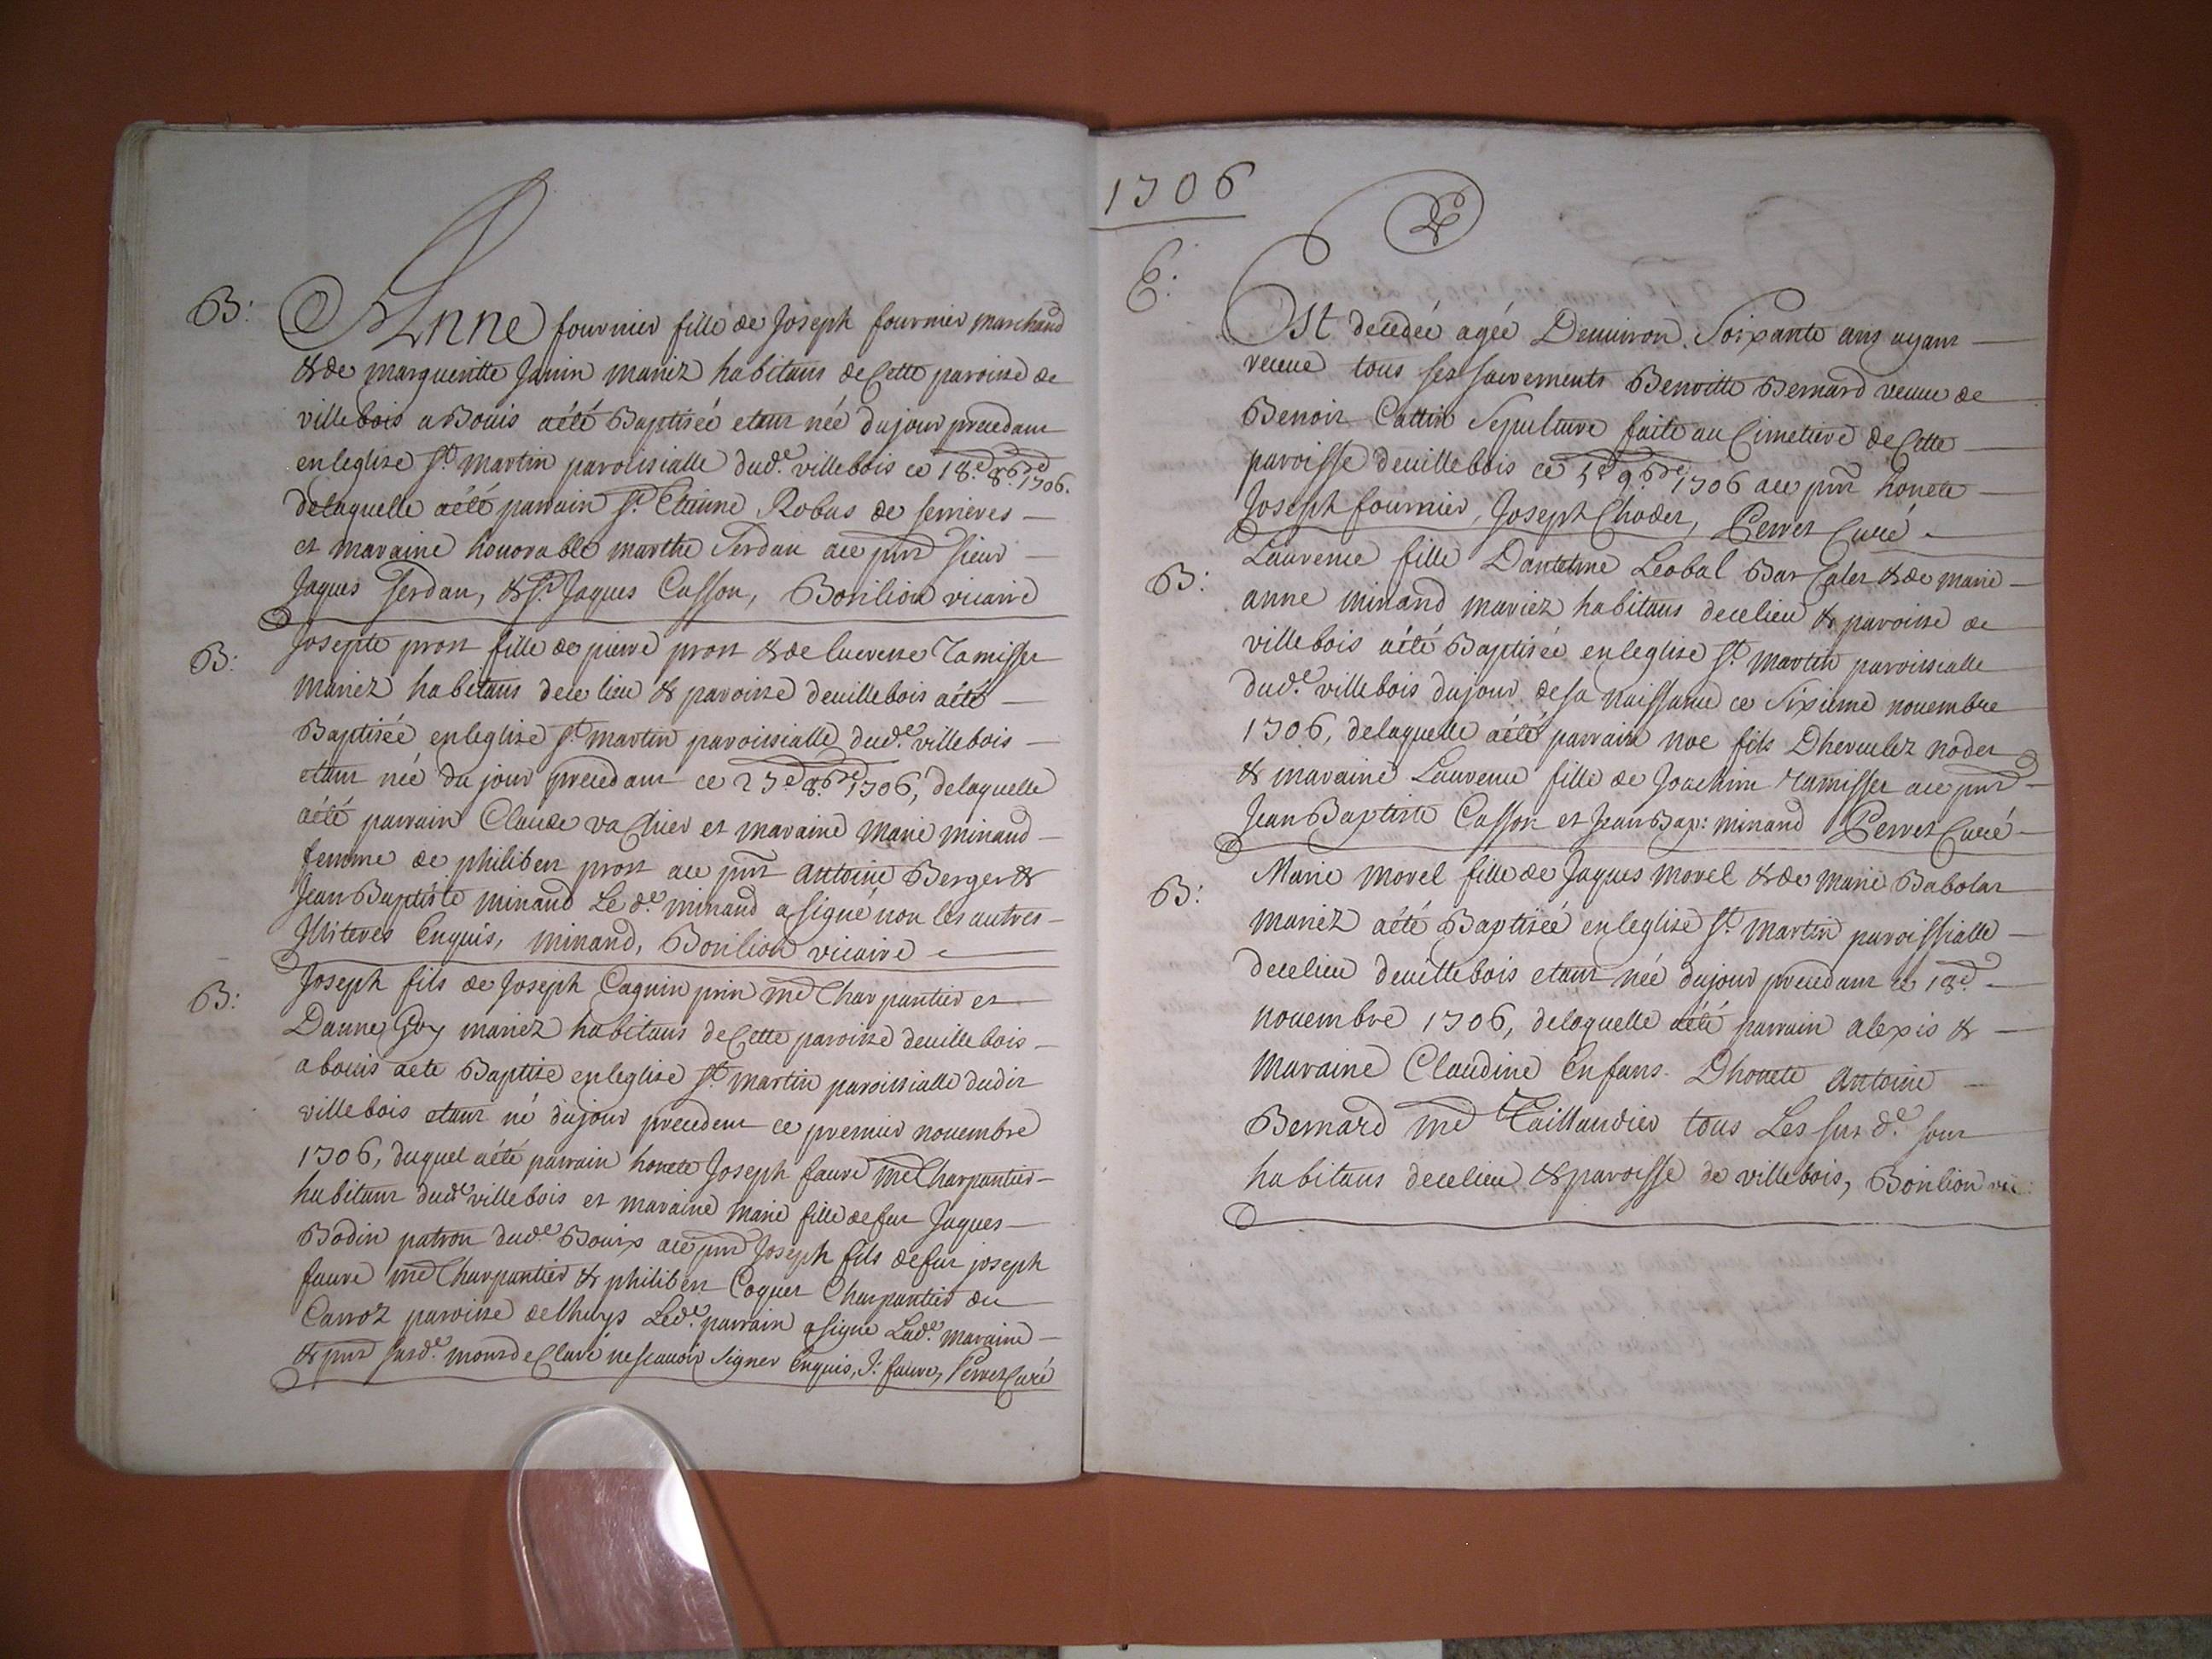 B: Anne fournier fille de Joseph fournier marchand
& de margueritte Janin mariez habitans de Cette paroisse de
villebois a Bouis aété Baptisée etant née du jour precedant
en leglise St. martin paroissialle dud.e villebois ce 18.e 8bre 1706.
delaquelle aété parrain Sr. Etienne Robas de serrieres
et maraine honorable marthe Serdan ace pnt sieur
Jaques Serdan, & Sr. Jaques Casson, Borilion vicaire
B: Josepte prost fille de pierre prost & de lucresse Tamisser
mariez habitans dece lieu & paroisse deuillebois aété
Baptisée enleglise St martin paroissialle dud.e villebois
etant née du jour precedant ce 25e 8bre 1706, delaquelle
aété parrain Claude vachier et maraine Marie minand
femme de philibert prost ace pnt Antoine Berger &
Jean Baptiste minand Le d.e minand asigné non les autres
Jlliteres Enquis, minand, Borilion vicaire
B: Joseph fils de Joseph Caguin prin me Charpantier et
Danne Goy mariez habitans de Cette paroisse deuillebois
abouis aete Baptise enleglise St martin paroissialle dudit
villebois etant né dujour precedent ce premier nouembre
1706, duquel aété parrain honete Joseph faure me Charpantier
habitant dud.e villebois et maraine Marie fille defeu Jaques
Bodin patron dud.e Bouis ace pnt Joseph fils defeu joseph
faure me Charpantier & philibert Coquet Charpantier du
Carroz paroisse de lhuys Led.e parrain asigné Lad.e maraine
& pnt susd.e mont declaré nescauoir signer Enquis, J: faure, Perret Curé
1706
E: Est decedée agée Denuiron Soixante ans ayant
receue tous ses sacrements Benoitte Bernard veuue de
Benoit Cattin Sepulture faite au Cimetiere de Cette
paroisse deuillebois ce 5e 9bre 1706 ace pnt honete
Joseph fournier, Joseph Choder, Perret Curé
B: Laurence fille Dantelme Leobal Bar Caler & de marie
anne minand mariez habitans decelieu & paroisse de
villebois aété Baptisée enleglise St. martin paroissialle
dud.e villebois dujour desa naissance ce Sixieme nouembre
1706, delaquelle aété parrain noe fils Dherculez noder
& maraine Laurence fille de Joachim Tamisser ace pnt
Jean Baptiste Casson et Jean Bap: minand Perret Curé
B: Marie morel fille de Jaques morel & de marie Babolat
mariez aété Baptisée enleglise St martin paroissialle
decelieu deuillebois etant née dujour precedant ce 18e
nouembre 1706, delaquelle aété parrain alexis &
maraine Claudine Enfans Dhonete Antoine
Bernard me Taillandier tous Les sus d.e sont
habitans decelieu & paroisse de villebois, Borilion vic: